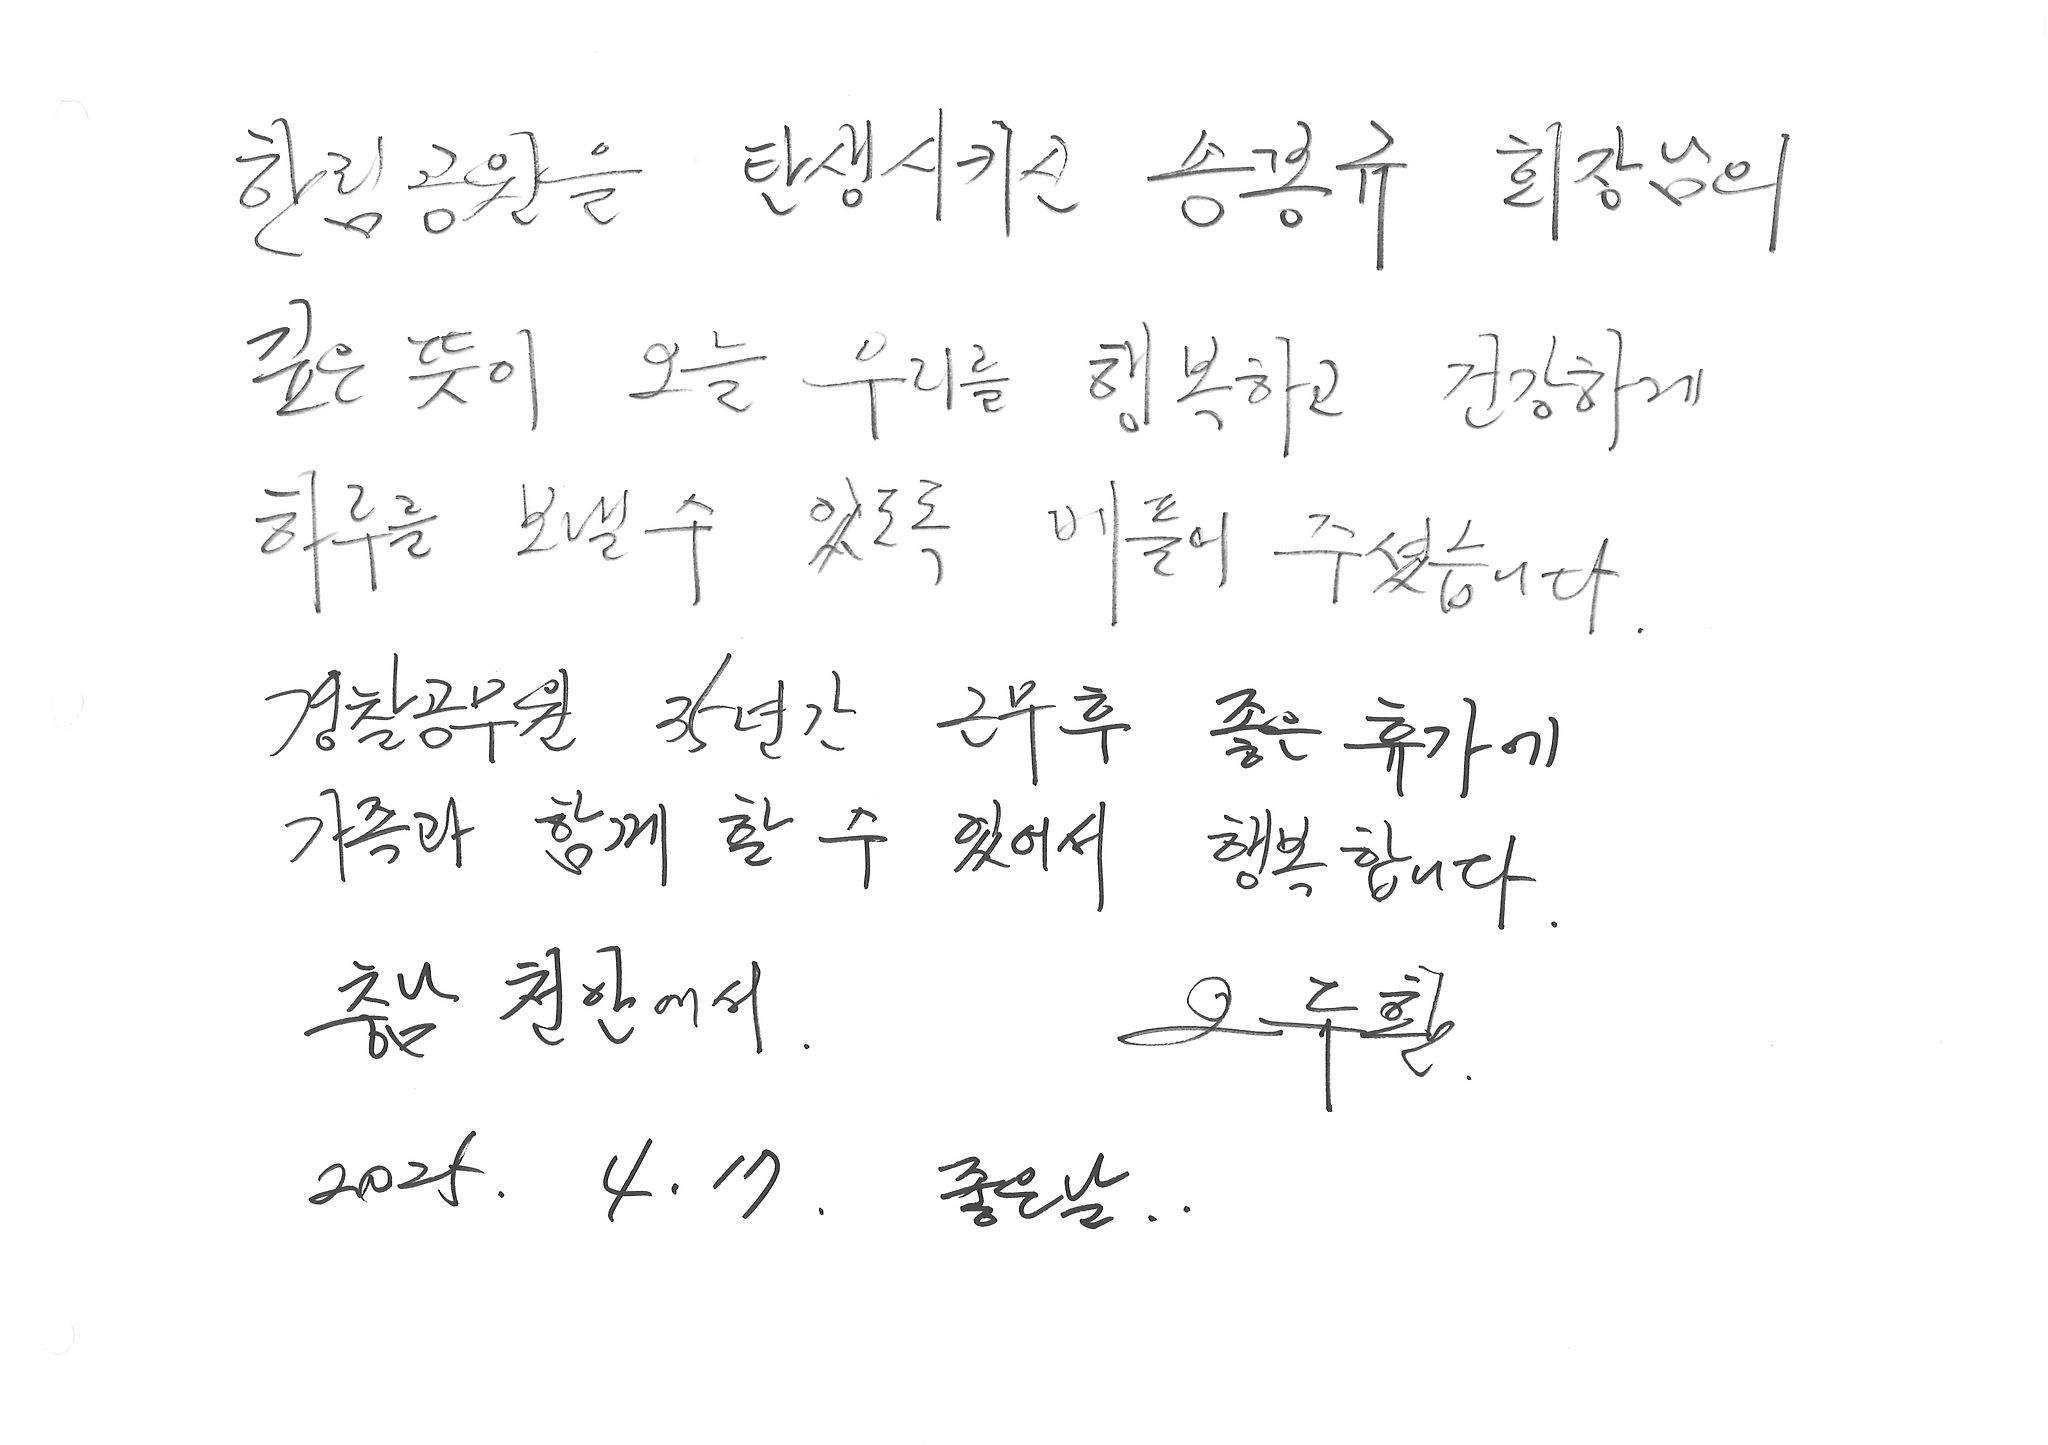 한림공원을 탄생시키신 송봉규 회장님의
깊은 뜻이 오늘 우리를 행복하고 건강하게
하루를 보낼 수 있도록 베플어 주셨습니다.
경찰공무원 35년간 근무후 좋은 휴가에
가족과 함께 할 수 있어서 행복합니다.
충남 천안에서. 오두환.
2025. 4. 17. 좋은날..